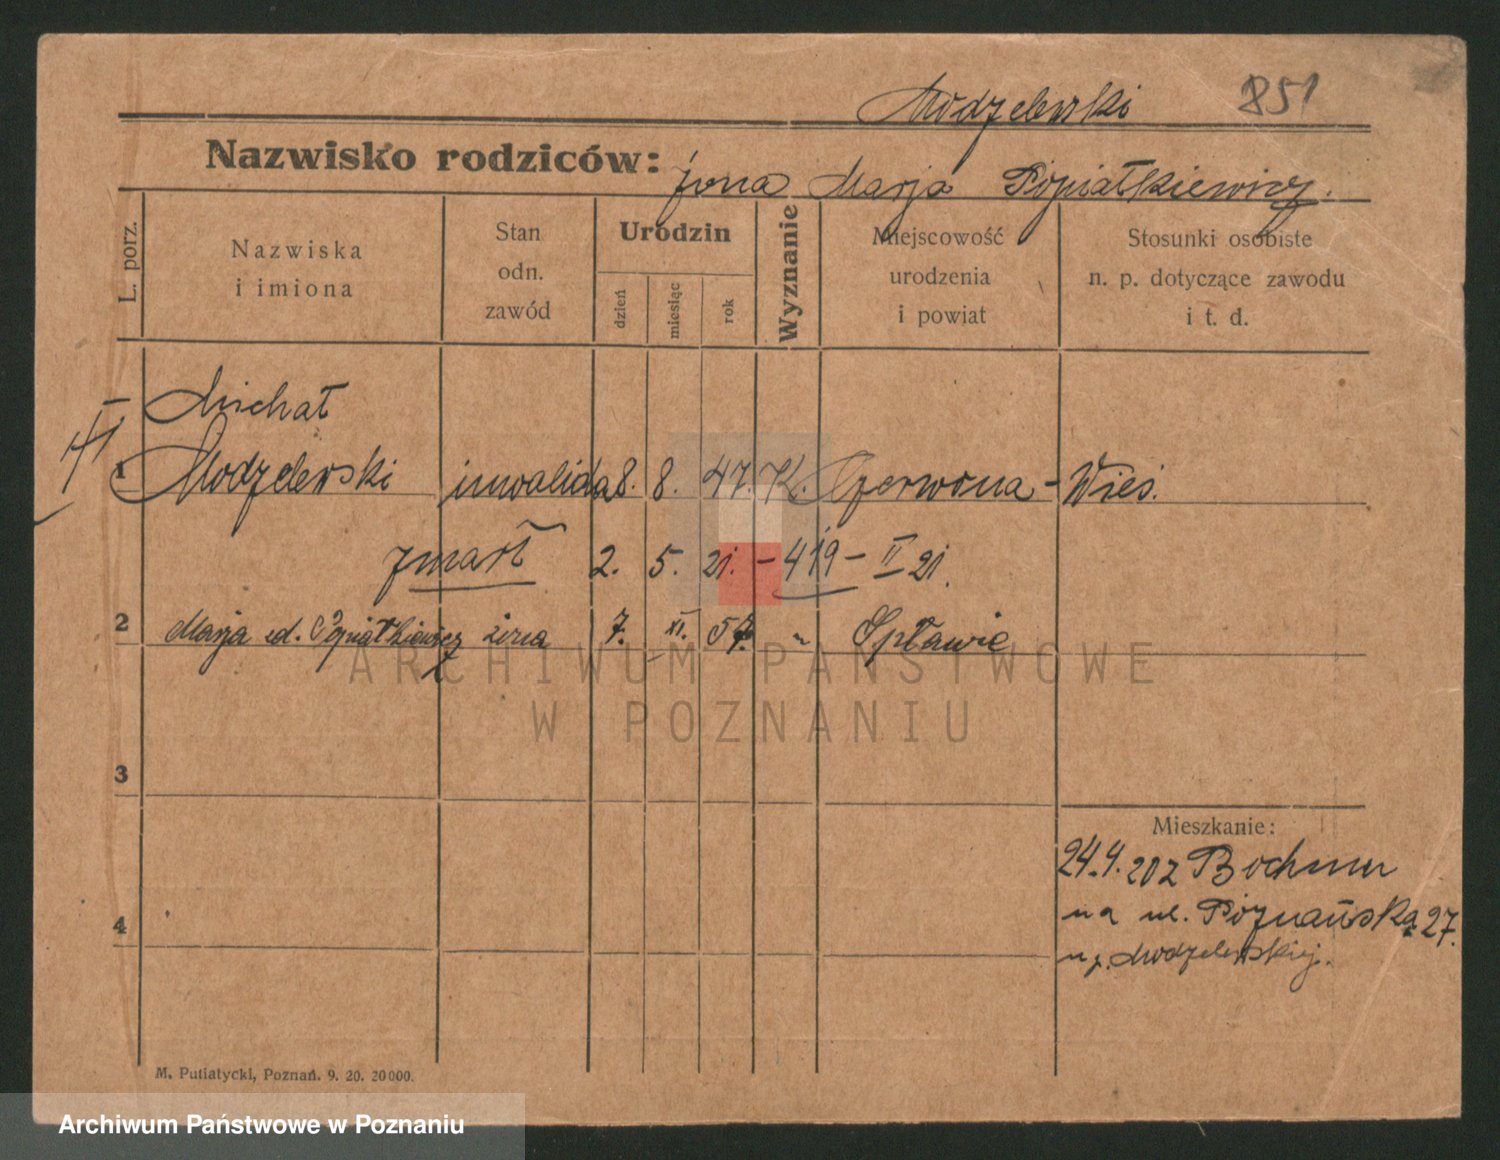 Modzelewski 851
Nazwisko rodziców: żona Marja Popiałkiewicz.
L. porz.
Nazwiska
i imiona
Stan
odn.
zawód
Urodzin
dzień
miesiąc
rok
Wyznanie
Miejscowość
urodzenia
i powiat
Stosunki osobiste
n. p. dotyczące zawodu
i t. d.
Michał
1 Modzelewski inwalida 8. 8. 47. K. Czerwona-Wieś.
zmarł 2. 5. 21. - 419 - II 21.
2 Marja ud. Popiałkiewicz żona 7. XI. 57. " Spławie
ARCHIWUM PAŃSTWOWE
W POZNANIU
3
Mieszkanie:
24.4.20 z Bochum
na ul. Poznańska 27.
4
u p. Modzelewskiej.
M. Putiatycki, Poznań. 9. 20. 20000.
Archiwum Państwowe w Poznaniu